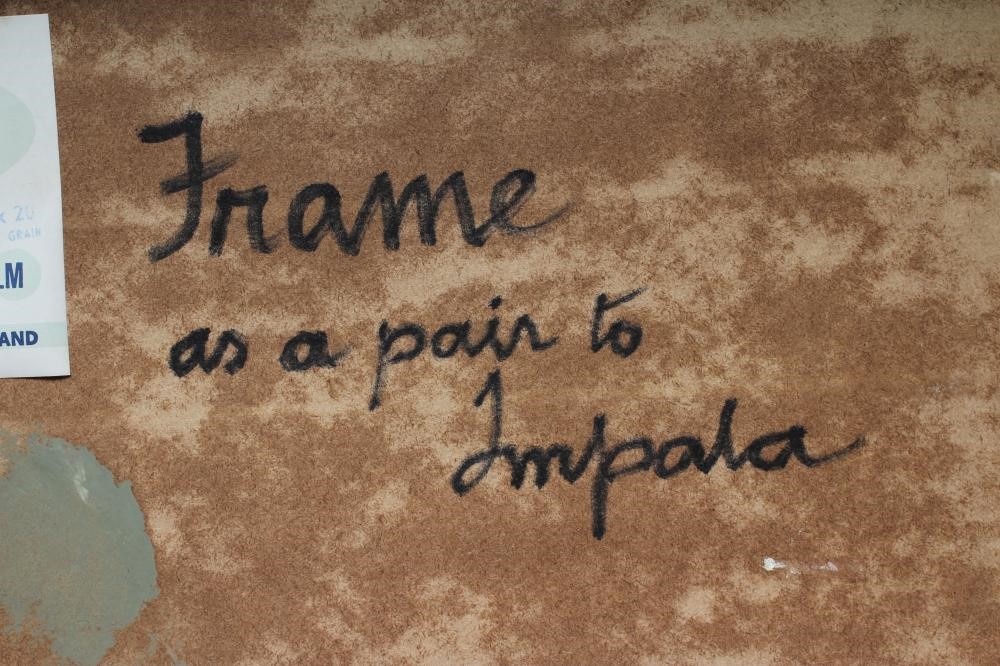 Frame
as a pair to
Impala
20
GRAIN
LM
AND